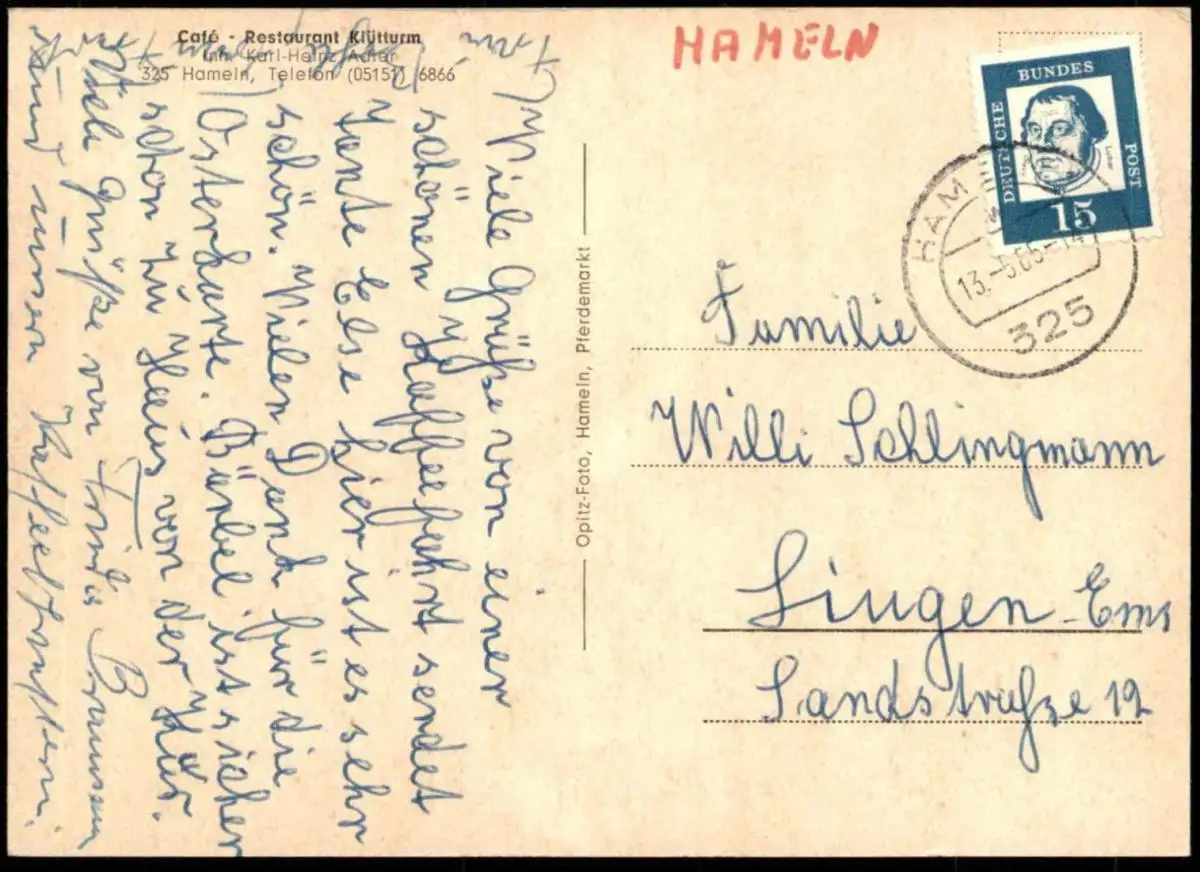 Café - Restaurant Klütturm
Inh. Karl-Heinz Adler
325 Hameln, Telefon (05151) 6866
HAMELN
DEUTSCHE
BUNDES
POST
Luther
15
HAMELN
13.-6.65-14
325
Viele Grüße von einer
schönen Kaffeefahrt sendet
Tante Else hier ist es sehr
schön. Vielen Dank für die
Osterkarte. Bärbel ist sicher
schon zu Haus von der Kur.
Viele Grüße von
und unsern
Opitz-Foto, Hameln, Pferdemarkt
Familie
Willi Schlingmann
Lingen-Ems
Sandstraße 12